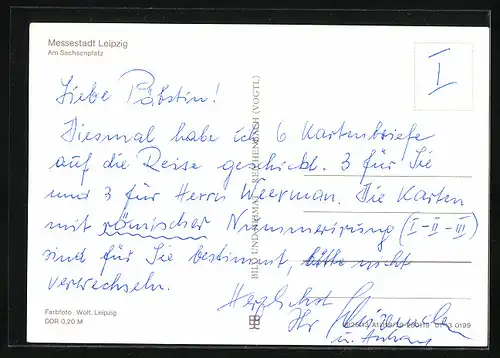 Messestadt Leipzig
Am Sachsenplatz
I
Liebe Päbstin!
Diesmal habe ich 6 Kartenbriefe
auf die Reise geschickt. 3 für Sie
und 3 für Herrn Weerman. Die Karten
mit römischer Nummerirung (I-II-III)
sind für Sie bestimmt, bitte nicht
verwechseln.
Herzlichst
Ihr
u. Anhang
BILD UND HEIMAT REICHENBACH (VOGTL)
Farbfoto: Wolf, Leipzig
DDR 0,20 M